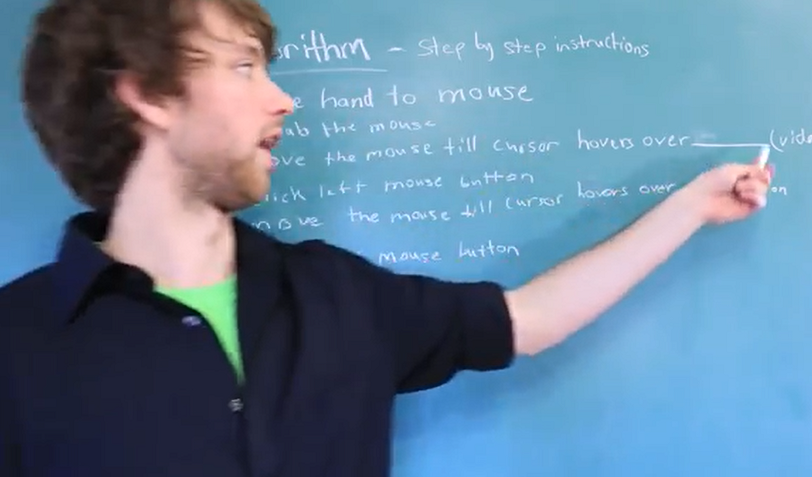 rithm - Step by step instructions
e hand to mouse
ab the mouse
ove the mouse till cursor hovers over ______ (vide
ick left mouse button
move the mouse till cursor hovers over on
mouse button